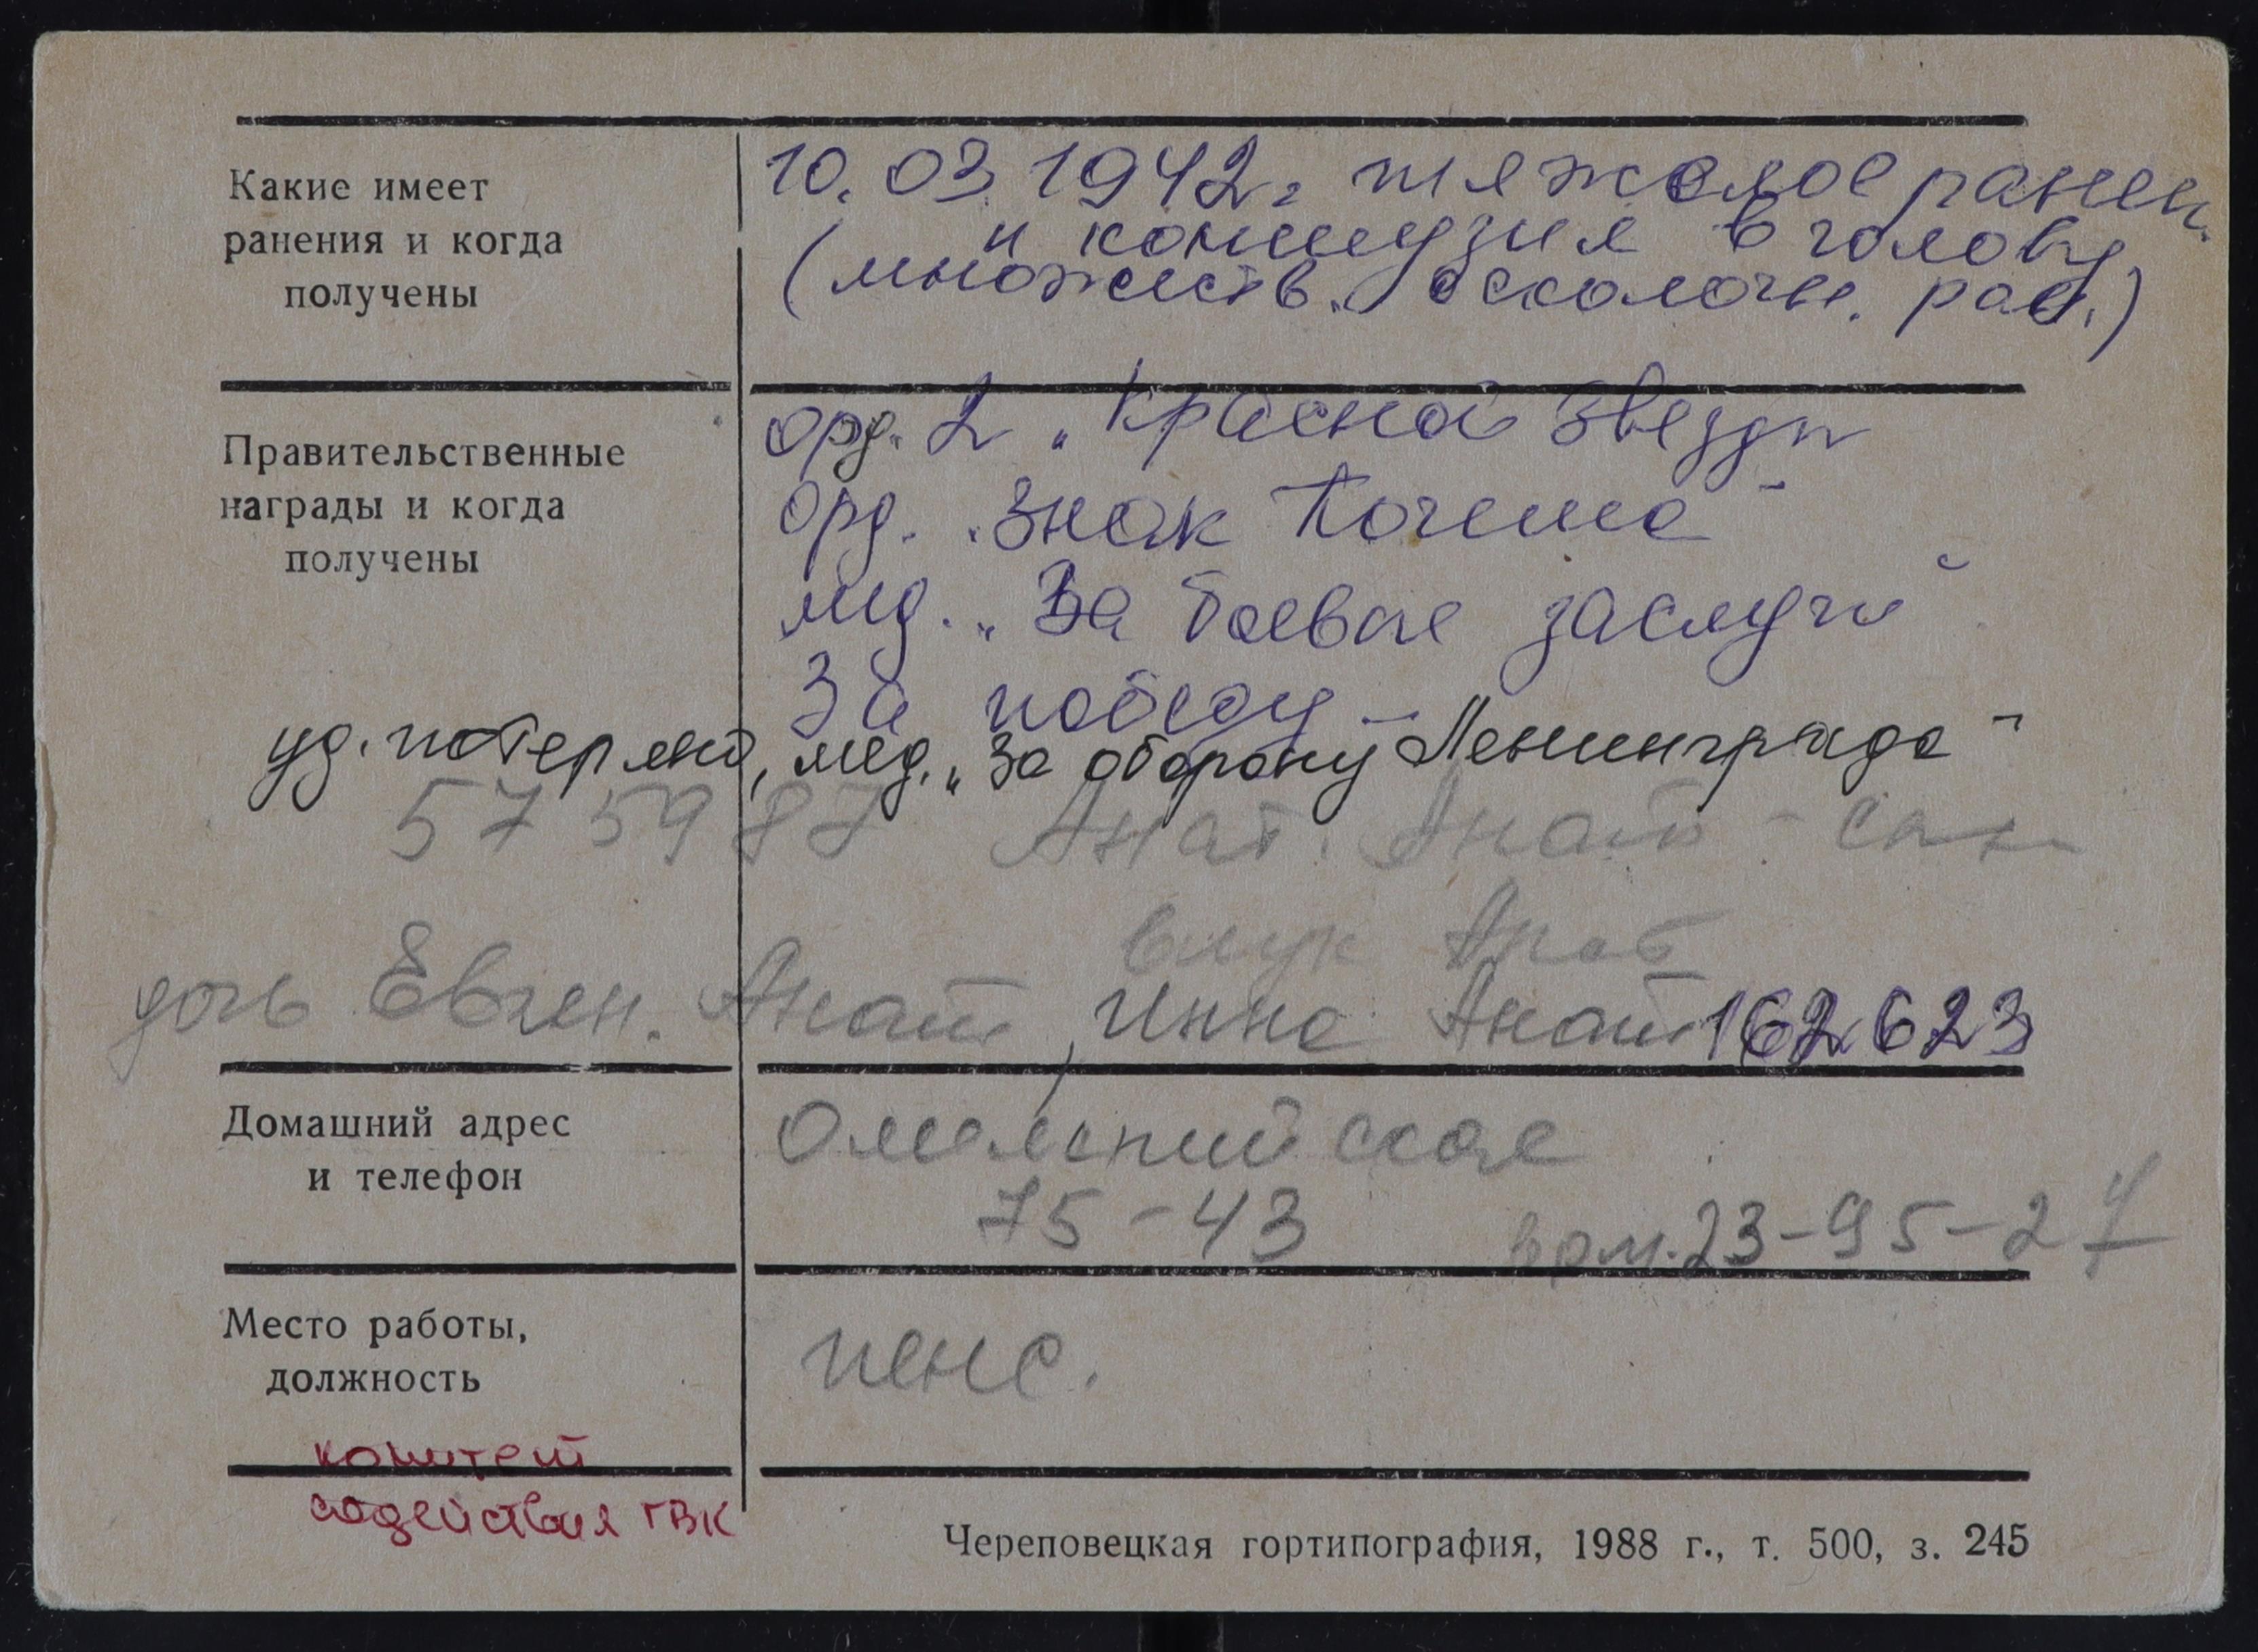 Какие имеет
ранения и когда
получены
10.03.1942г тяжелое ранен.
и контузия в голову
(множеств. осколочн. ран.)
Правительственные
награды и когда
получены
орд. 2 „Красной Звезды
орд. „Знак Почета"
мед. „За боевые заслуги"
За победу"
уд. потеряно, мед. „За оборону Ленинграда"
575987 Анат. Анат - сын
внук
дочь Евген. Анат, Инна Анат 162623
Домашний адрес
и телефон
75-43
23-95-27
Место работы,
должность
пенс.
комитет
содействия ГВК
Череповецкая гортипография, 1988 г., т. 500, з. 245